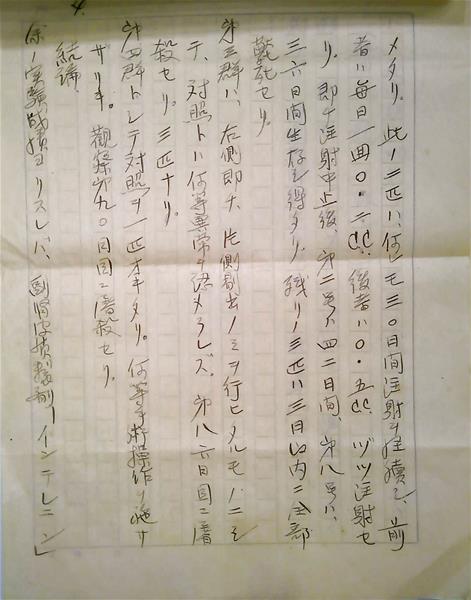 4.
メタリ。此ノ二匹ハ、何レモ三〇日間注射ヲ継続シ、前
者ハ毎日一回〇・二c.c. 後者ハ〇・五c.c. ヅツ注射セ
リ。即チ注射中止後、第二号ハ四二日間、第八号ハ、
三六日間生存シ得タリ。残リノ三匹ハ三日以内ニ全部
斃死セリ。
第三群ハ、右側即チ、片側剔出ノミヲ行ヒタルモノニシ
テ、対照トハ何等異常ヲ認メラレズ。第八六日目ニ屠
殺セリ。三匹ナリ。
第四群トシテ対照ヲ一匹オキタリ。何等手術操作ヲ施サ
ザリキ。観察第九〇日目ニ屠殺セリ。
結論
余ノ実験成績ヨリスレバ、副腎皮質製剤「インテレニン」